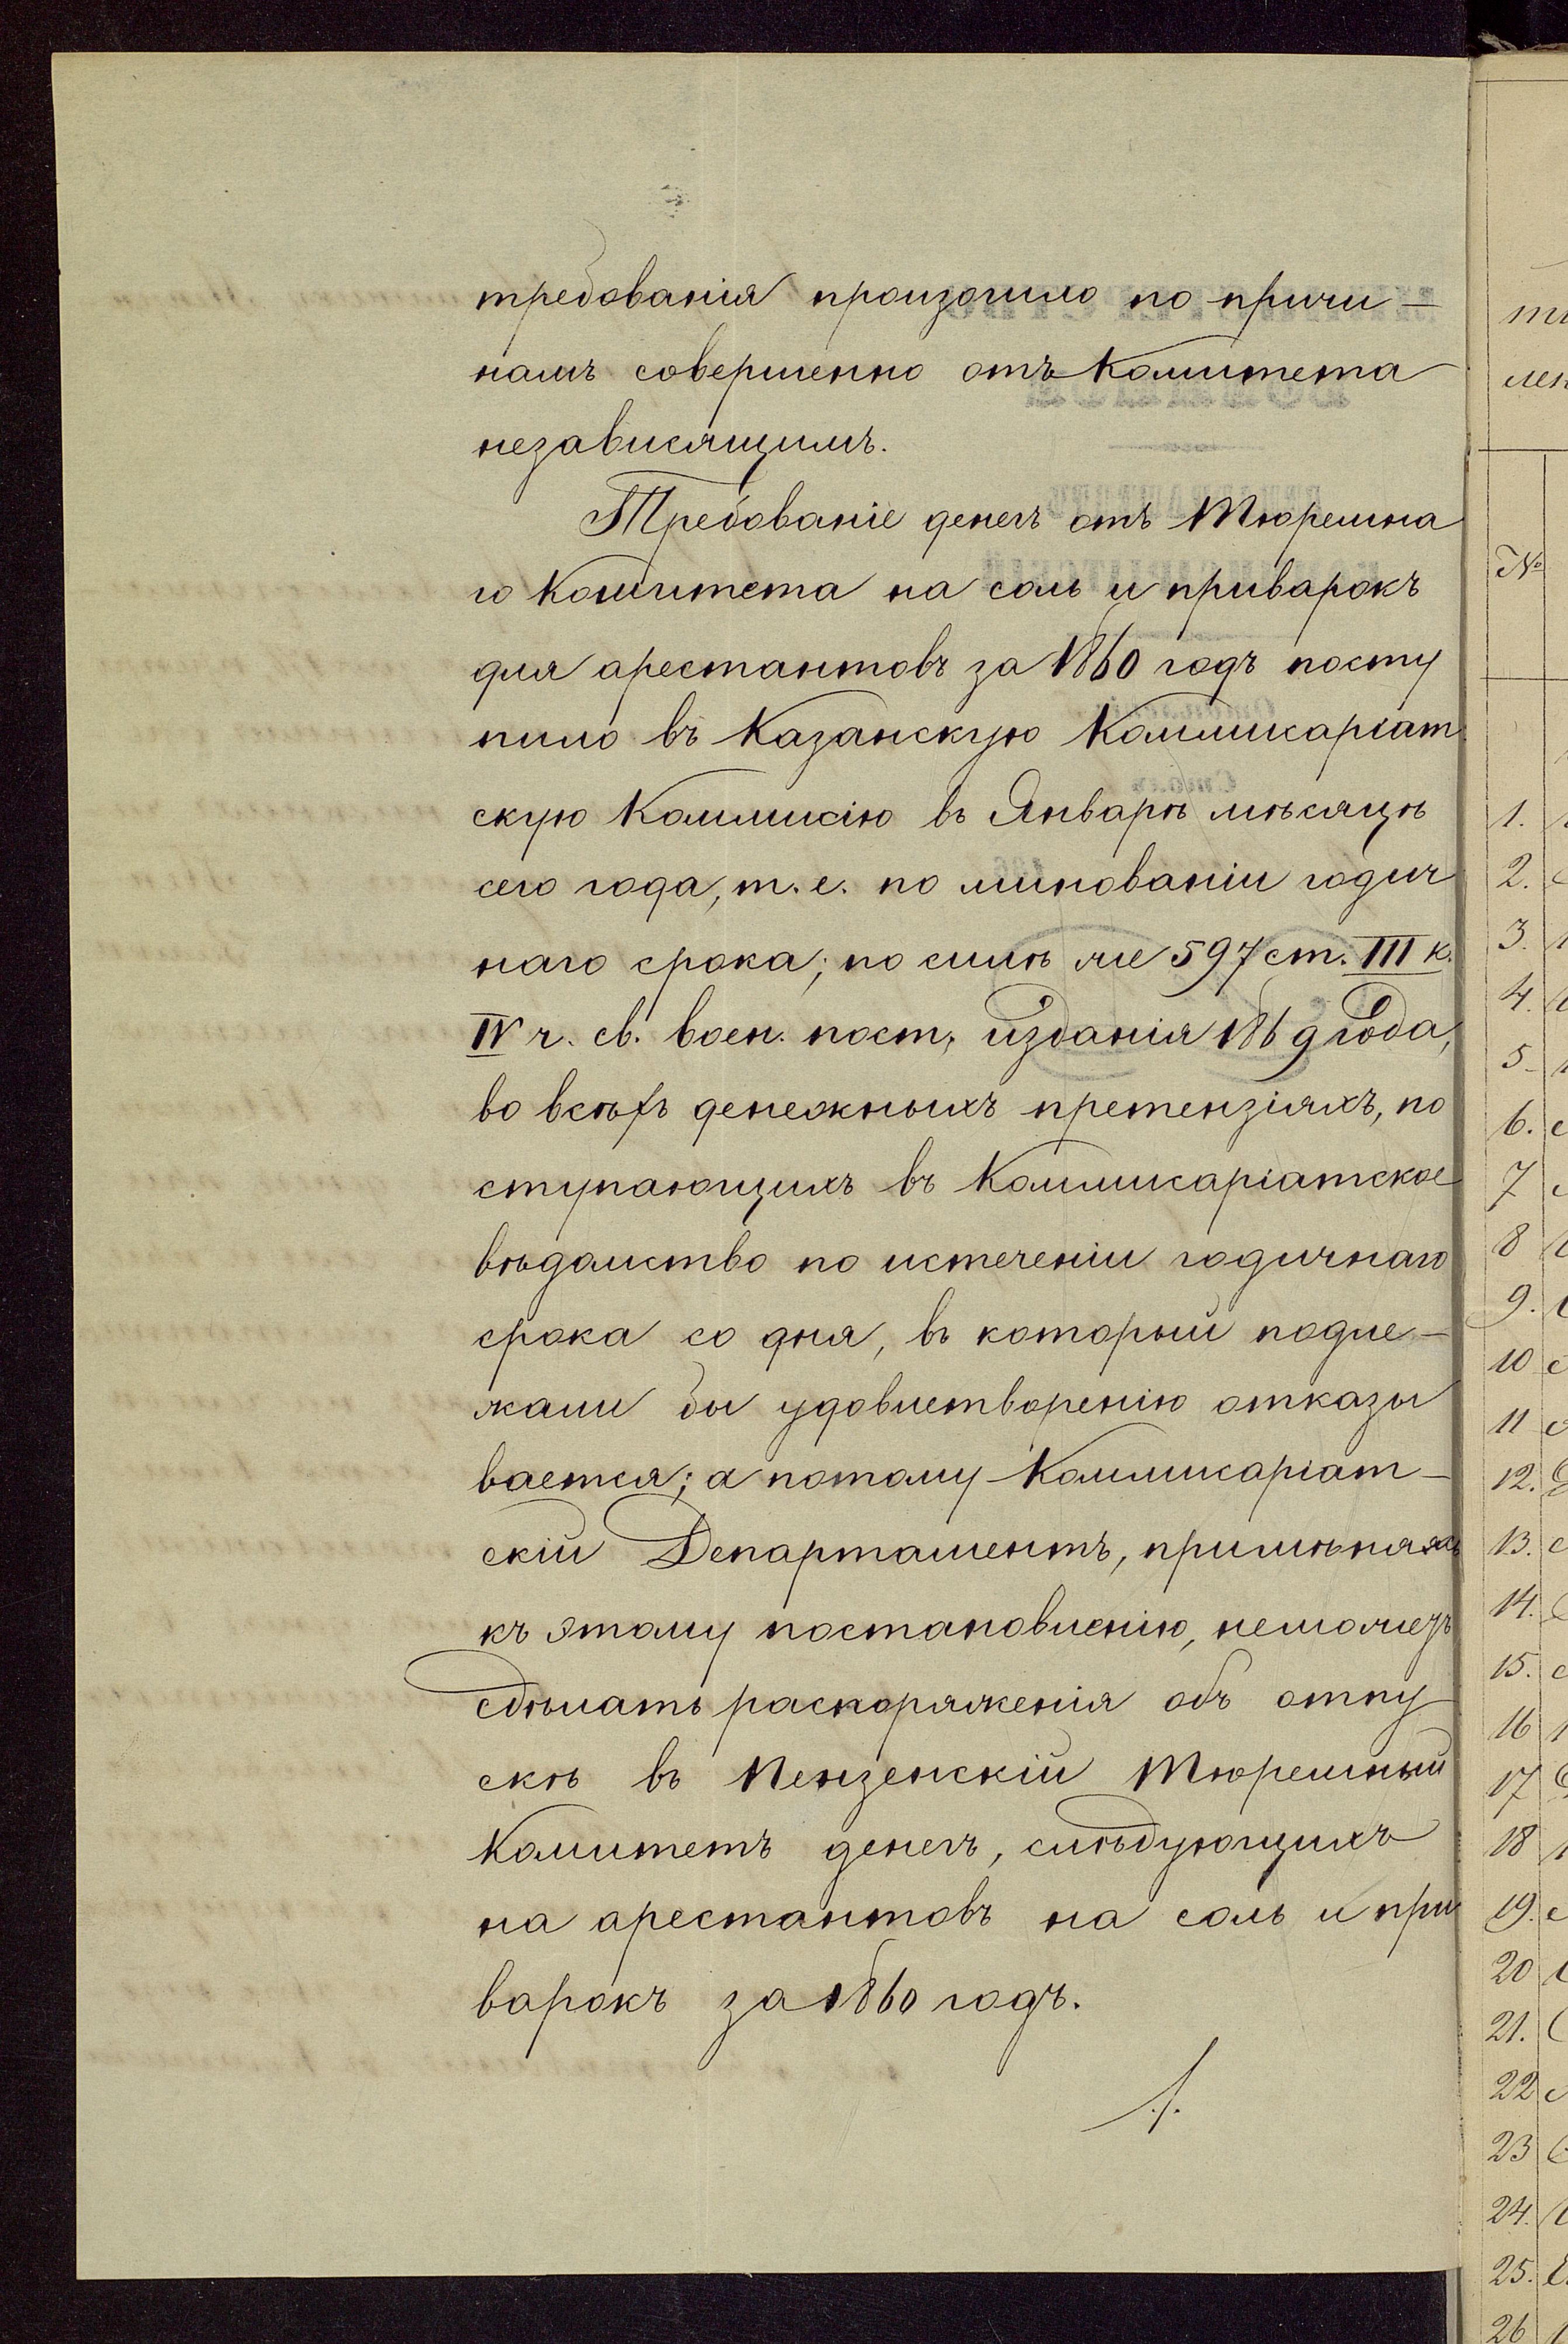 требованія произошло по причи-
намъ совершенно отъ Комитета
независящимъ.
Требованіе денегъ отъ Тюремна
го Комитета на соль и приварокъ
для арестантовъ за 1860 годъ посту
пило въ Казанскую Коммисаріат
скую Коммисію въ Январѣ мѣсяцѣ
сего года, т. е. по минованіи годич
наго срока; по силѣ же 597 ст. III к.
IV ч. св. воен. пост. изданія 1869 года,
во всѣхъ денежныхъ претензіяхъ, по
ступающихъ въ Коммисаріатское
вѣдомство по истеченіи годичнаго
срока со дня, въ который подле-
жали бы удовлетворенію отказы
вается; а потому Коммисаріат-
скій Департаментъ, примѣняясь
къ этому постановленію, неможетъ
сдѣлать распоряженія объ отпу
скѣ въ Пензенскій Тюремный
Комитетъ денегъ, слѣдующихъ
на арестантовъ на соль и при
варокъ за 1860 годъ.
№
1.
2.
3.
4.
5.
6.
7
8
9.
10
11
12.
13.
14.
15.
16
17
18
19.
20
21.
22
23
24.
25.
26